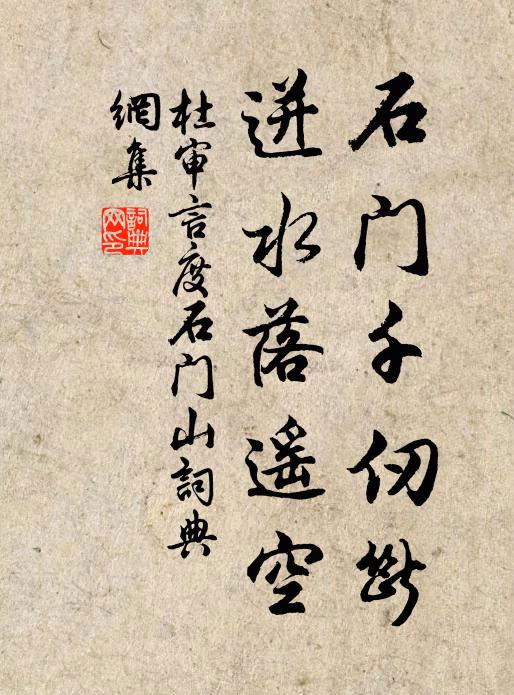 石门千仞断
迸水落遥空
杜审言度石门山詞典
網集
詞典網印